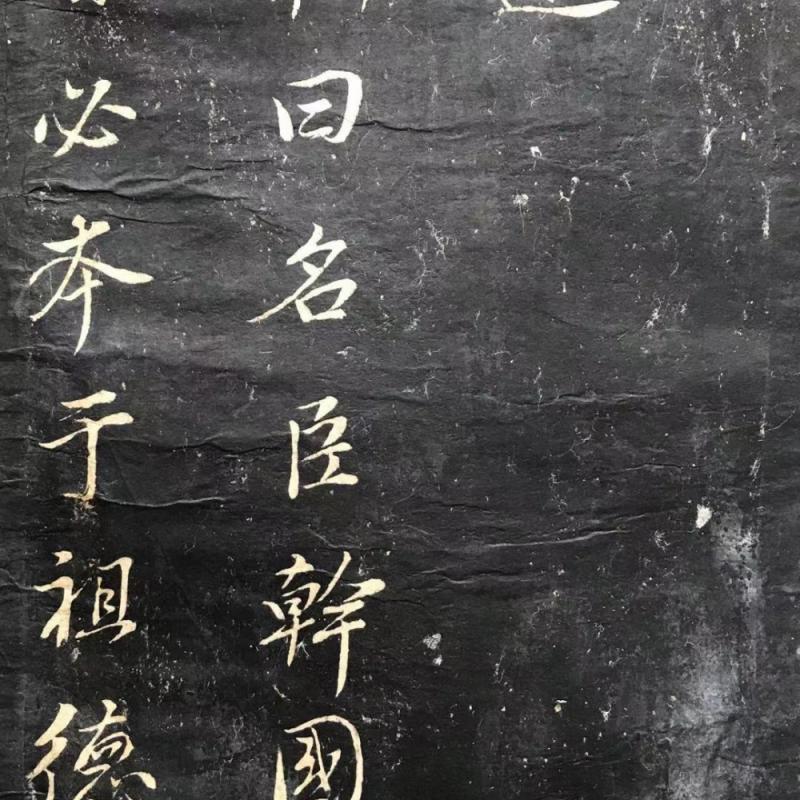 曰名臣幹國
必本于祖德